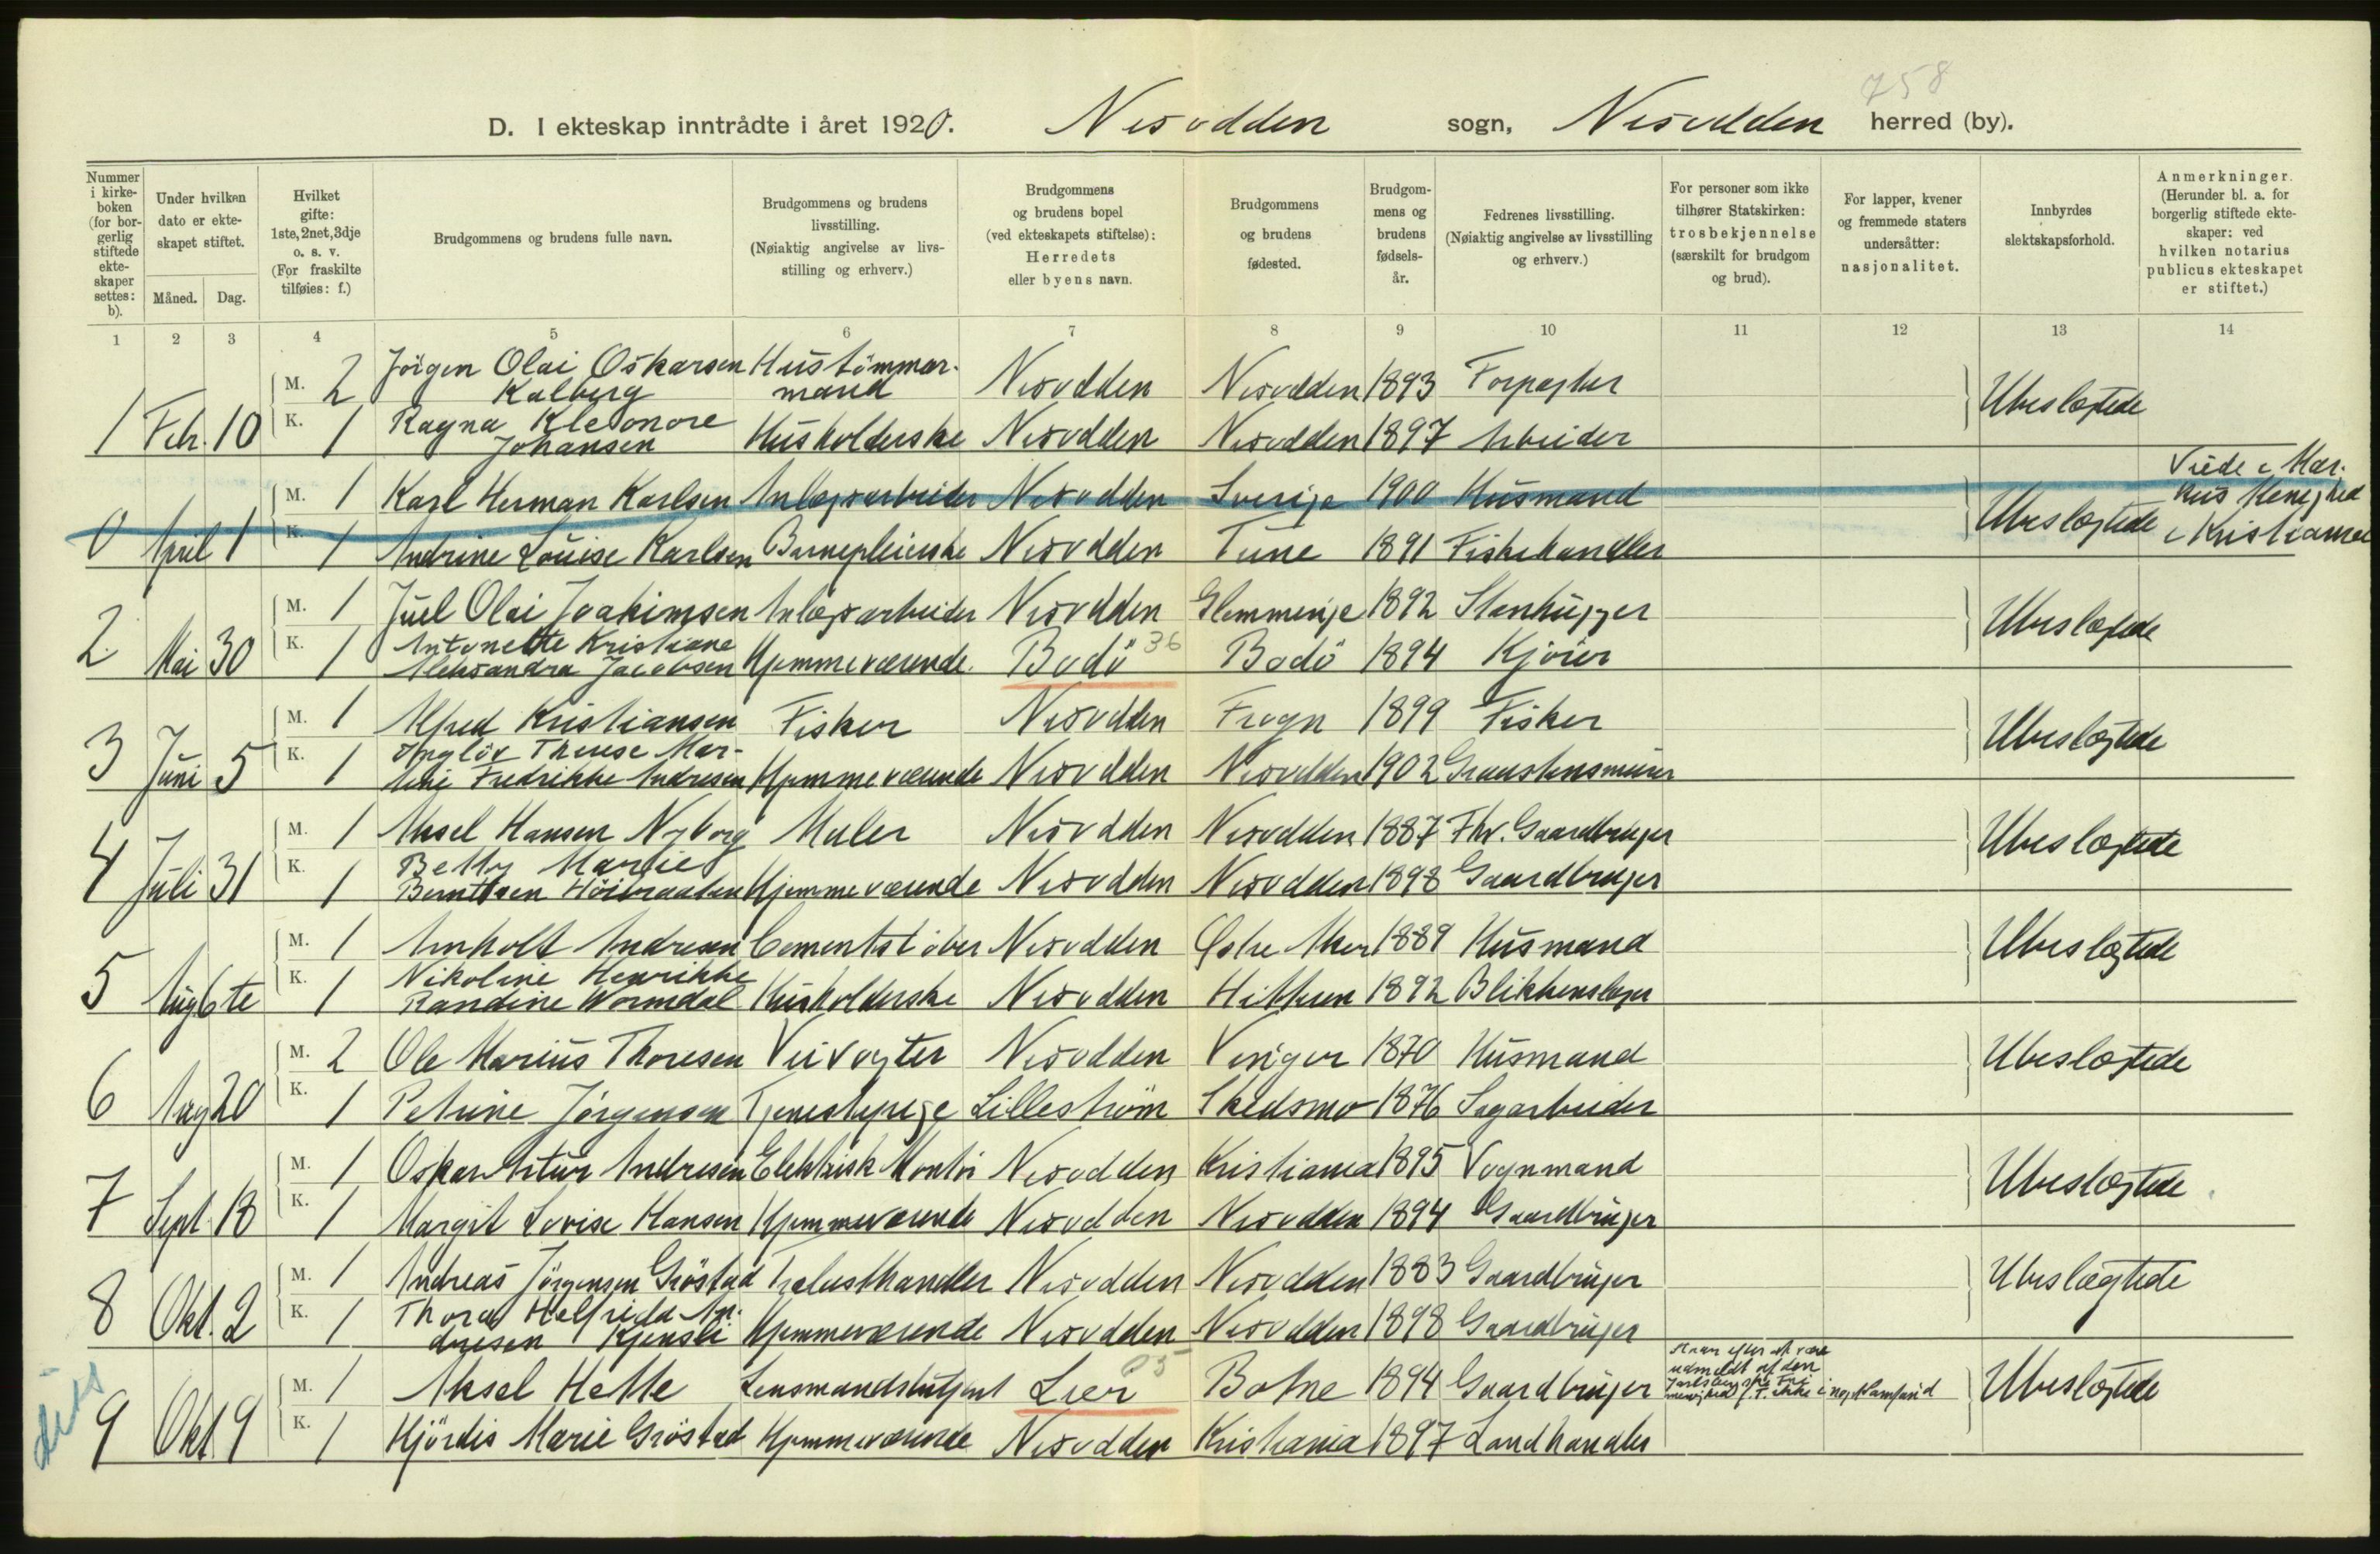 758
D. I ekteskap inntrådte i året 1920. Nesodden sogn, Nesodden herred (by).
Nummer i kirke- boken (for bor- gerlig stiftede ekte- skaper settes: b).
Under hvilken dato er ekte- skapet stiftet.
Måned. Dag.
Hvilket gifte: 1ste, 2net, 3dje o. s. v. (For fraskilte tilføies: f.)
Brudgommens og brudens fulle navn.
Brudgommens og brudens livsstilling. (Nøiaktig angivelse av livs- stilling og erhverv.)
Brudgommens og brudens bopel (ved ekteskapets stiftelse): Herredets eller byens navn.
Brudgommens og brudens fødested.
Brudgom- mens og brudens fødsels- år.
Fedrenes livsstilling. (Nøiaktig angivelse av livsstilling og erhverv.)
For personer som ikke tilhører Statskirken: trosbekjennelse (særskilt for brudgom og brud).
For lapper, kvener og fremmede staters undersåtter: nasjonalitet.
Innbyrdes slektskapsforhold.
Anmerkninger. (Herunder bl. a. for borgerlig stiftede ekte- skaper: ved hvilken notarius publicus ekteskapet er stiftet.)
1 2 3 4 5 6 7 8 9 10 11 12 13 14
M. 2 Jörgen Olai Oskarsen Kalberg Hustömmer- mand Nesodden Nesodden 1893 Forpagter Ubeslægtede
1 Febr. 10 K. 1 Ragna Kleonore Johansen Husholderske Nesodden Nesodden 1897 Arbeider
M. 1 Karl Herman Karlsen Anlægsarbeider Nesodden Sverige 1900 Husmand Ubeslægtede Viede i Mar. hus Menighed i Kristiania
0 April 1 K. 1 Andrine Louise Karlsen Barnepleierske Nesodden Tune 1891 Fiskehandler
M. 1 Juel Olai Joakimsen Anlægsarbeider Nesodden Glemminge 1892 Stenhugger Ubeslægtede
2. Mai 30 K. 1 Antonette Kristiane Aleksandra Jacobsen Hjemmeværende. Bodö 36 Bodö 1894 Kjörer
M. 1 Alfred Kristiansen Fisker Nesodden Frogn 1899 Fisker Ubeslægtede
3 Juni 5 K. 1 Therese Mar- Fredrikke Andresen Hjemmeværende Nesodden Nesodden 1902 Graastensmurer
M. 1 Aksel Hansen Nyborg Maler Nesodden Nesodden 1887 Fhv. Gaardbruger Ubeslægtede
4 Juli 31 K. 1 Betty Marie Berntsen Höibraaten Hjemmeværende Nesodden Nesodden 1898 Gaardbruger
M. 1 Arnholt Andresen Cementstöber Nesodden Östre Aker 1889 Husmand Ubeslægtede
5 Aug 6te K. 1 Nikoline Henrikke Randine Wormdal Husholderske Nesodden Hitteren 1892 Blikkenslager
M. 2 Ole Marius Thoresen Veivogter Nesodden Vinger 1870 Husmand Ubeslægtede
6 Aug 20 K. 1 Petrine Jörgensen Tjenestepige Lilleström Skedsmo 1876 Sagarbeider
M. 1 Oskar Artur Andresen Elektrisk Montör Nesodden Kristiania 1895 Vognmand Ubeslægtede
7 Sept. 18 K. 1 Margit Lovise Hansen Hjemmeværende Nesodden Nesodden 1894 Gaardbruger
M. 1 Andreas Jörgensen Gröstad Trælasthandler Nesodden Nesodden 1883 Gaardbruger Ubeslægtede
8 Okt. 2 K. 1 Thora Helfrida An- dresen Hjemmeværende Nesodden Nesodden 1898 Gaardbruger
M. 1 Aksel Hette Lensmandsbetjent Lier Botne 1894 Gaardbruger udmeldt af den Jarlsbergske Fri menighed f. T. ikke i noget Samfund Ubeslægtede
9 Okt. 9 K. 1 Hjördis Marie Gröstad Hjemmeværende Nesodden Kristiania 1897 Landhandler